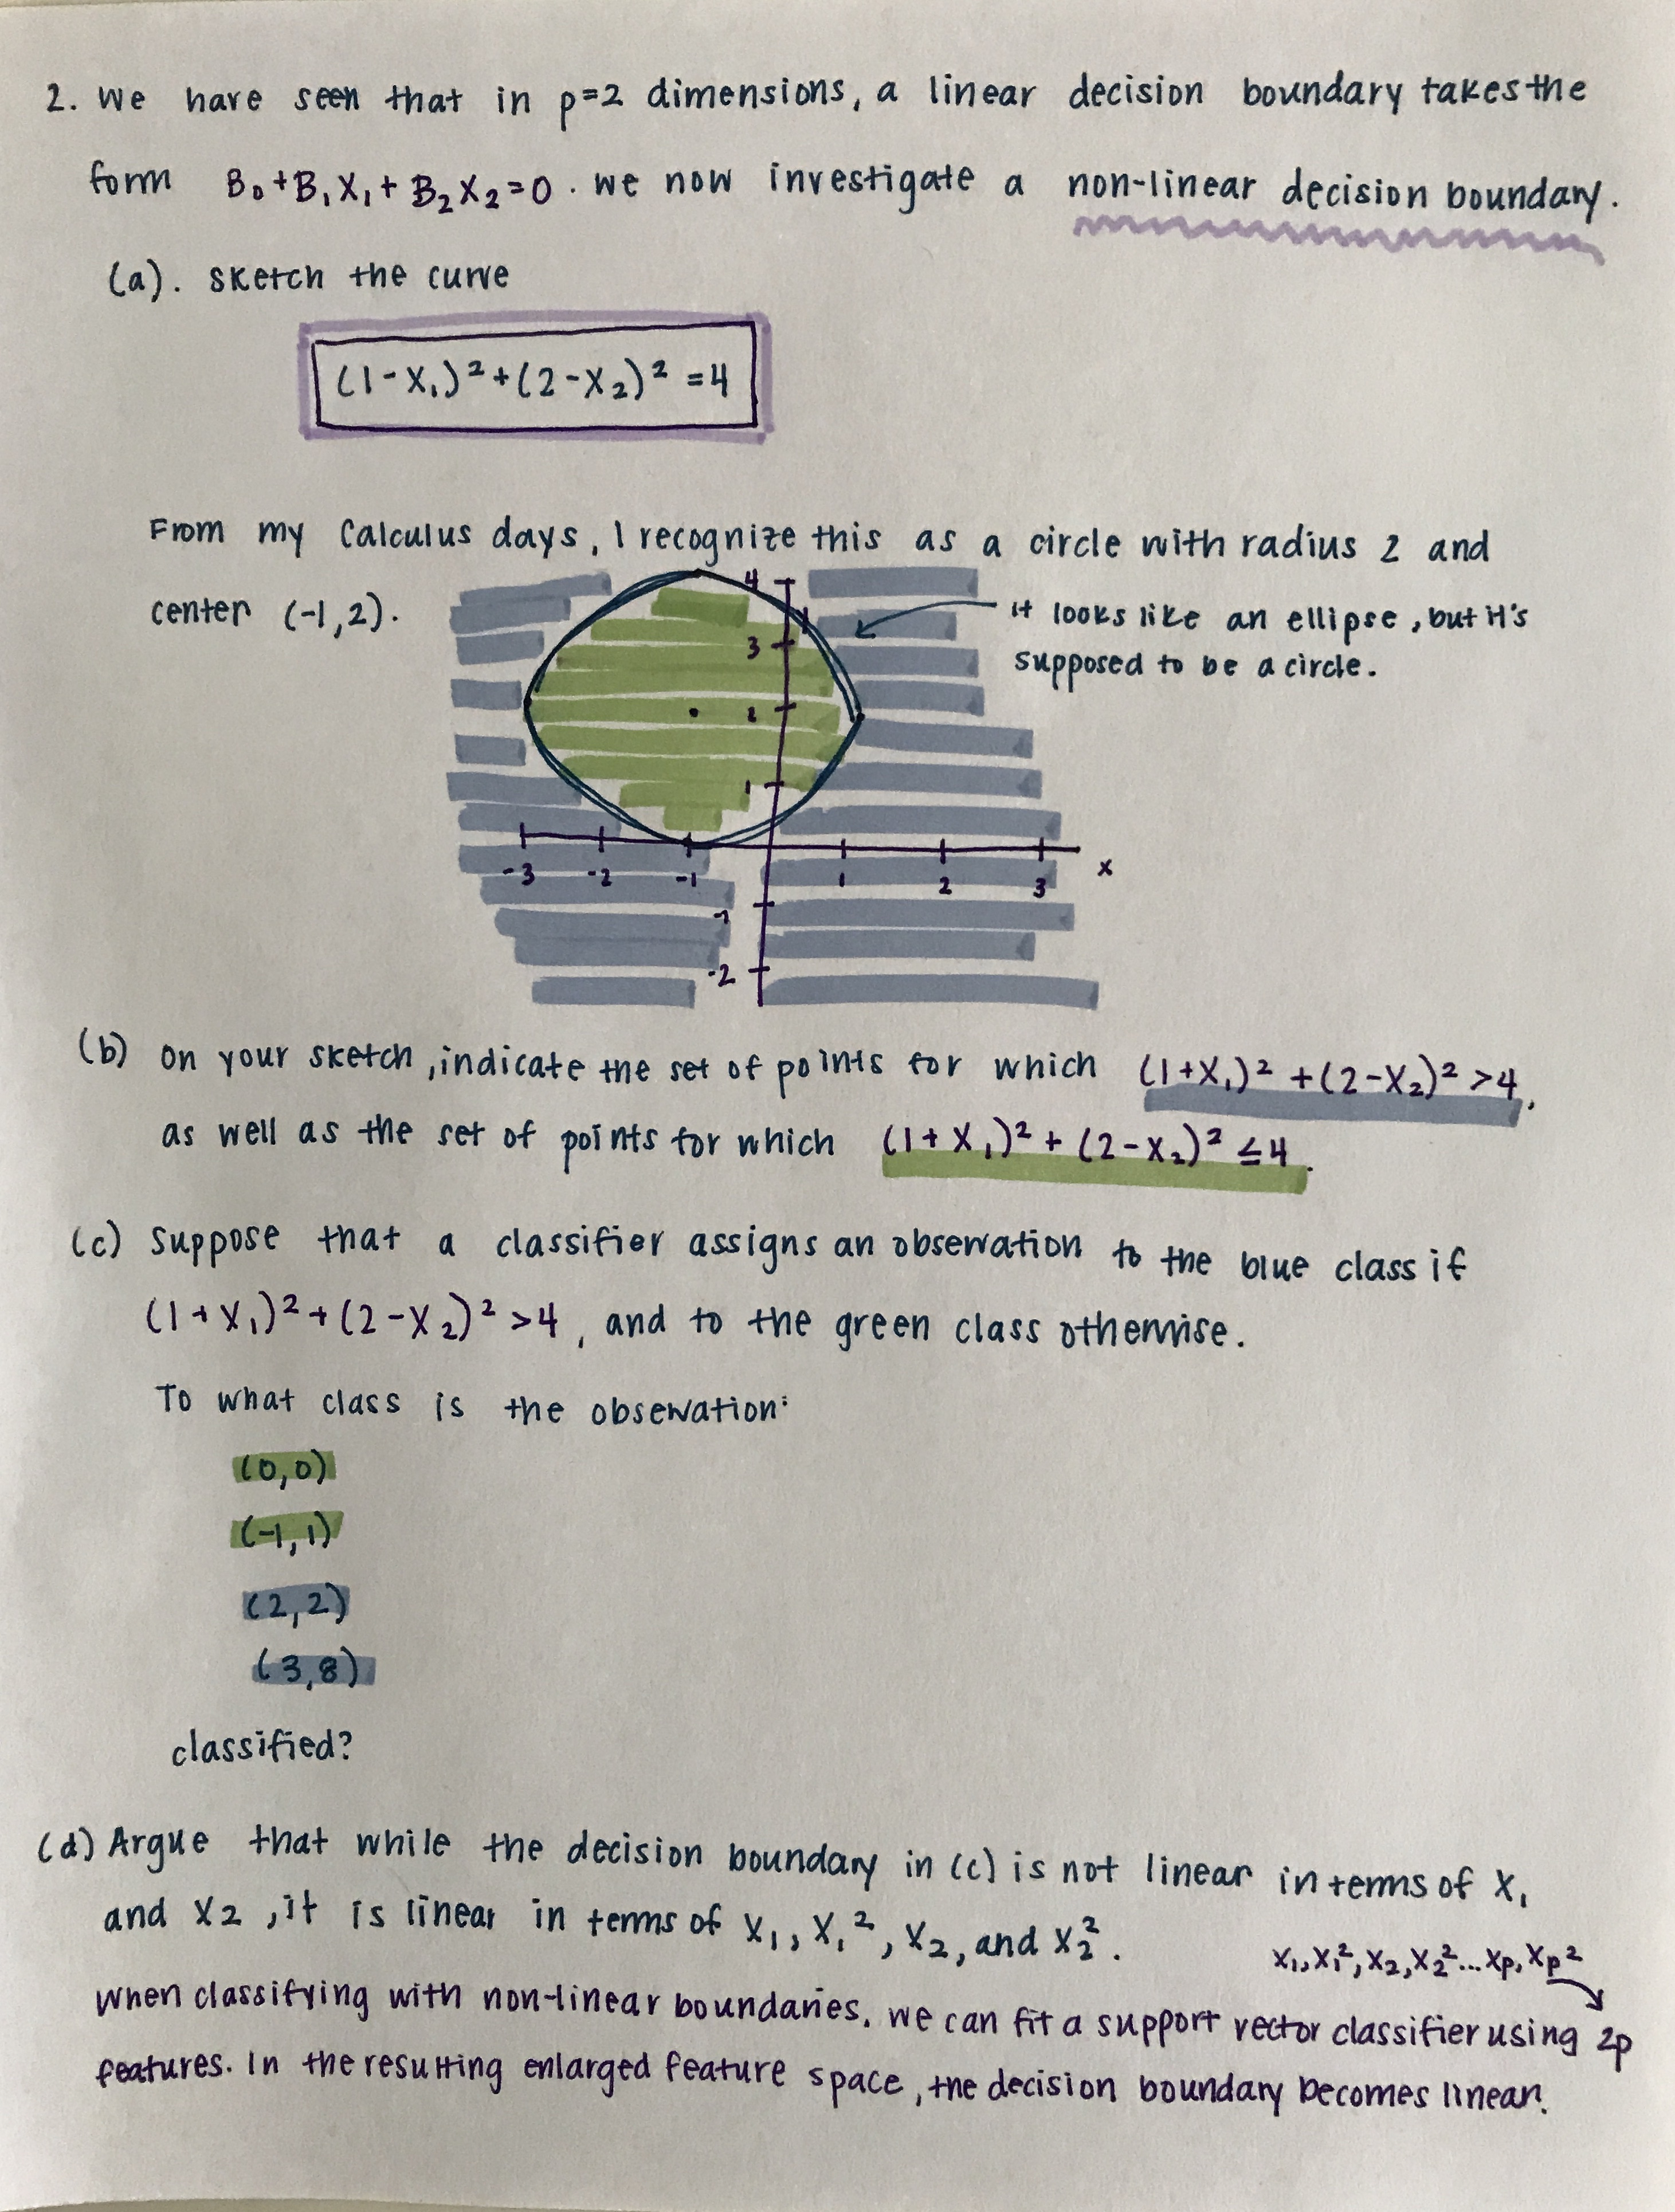 2. We have seen that in p=2 dimensions, a linear decision boundary takes the
form B₀+B₁X₁+B₂X₂=0. We now investigate a non-linear decision boundary.
(a). Sketch the curve
(1-X₁)²+(2-X₂)²=4
From my Calculus days, I recognize this as a circle with radius 2 and
center (-1,2).
it looks like an ellipse, but it's
supposed to be a circle.
4
3
2
1
-3 -2 -1 1 2 3 x
-1
-2
(b) On your sketch, indicate the set of points for which (1+X₁)²+(2-X₂)²>4,
as well as the set of points for which (1+X₁)²+(2-X₂)²≤4.
(c) Suppose that a classifier assigns an observation to the blue class if
(1+X₁)²+(2-X₂)²>4, and to the green class otherwise.
To what class is the observation:
(0,0)
(-1,1)
(2,2)
(3,8)
classified?
(d) Argue that while the decision boundary in (c) is not linear in terms of X₁
and X₂, it is linear in terms of X₁, X₁², X₂, and X₂².
X₁,X₁²,X₂,X₂²...Xp,Xp²
When classifying with non-linear boundaries, we can fit a support vector classifier using 2p
features. In the resulting enlarged feature space, the decision boundary becomes linear.